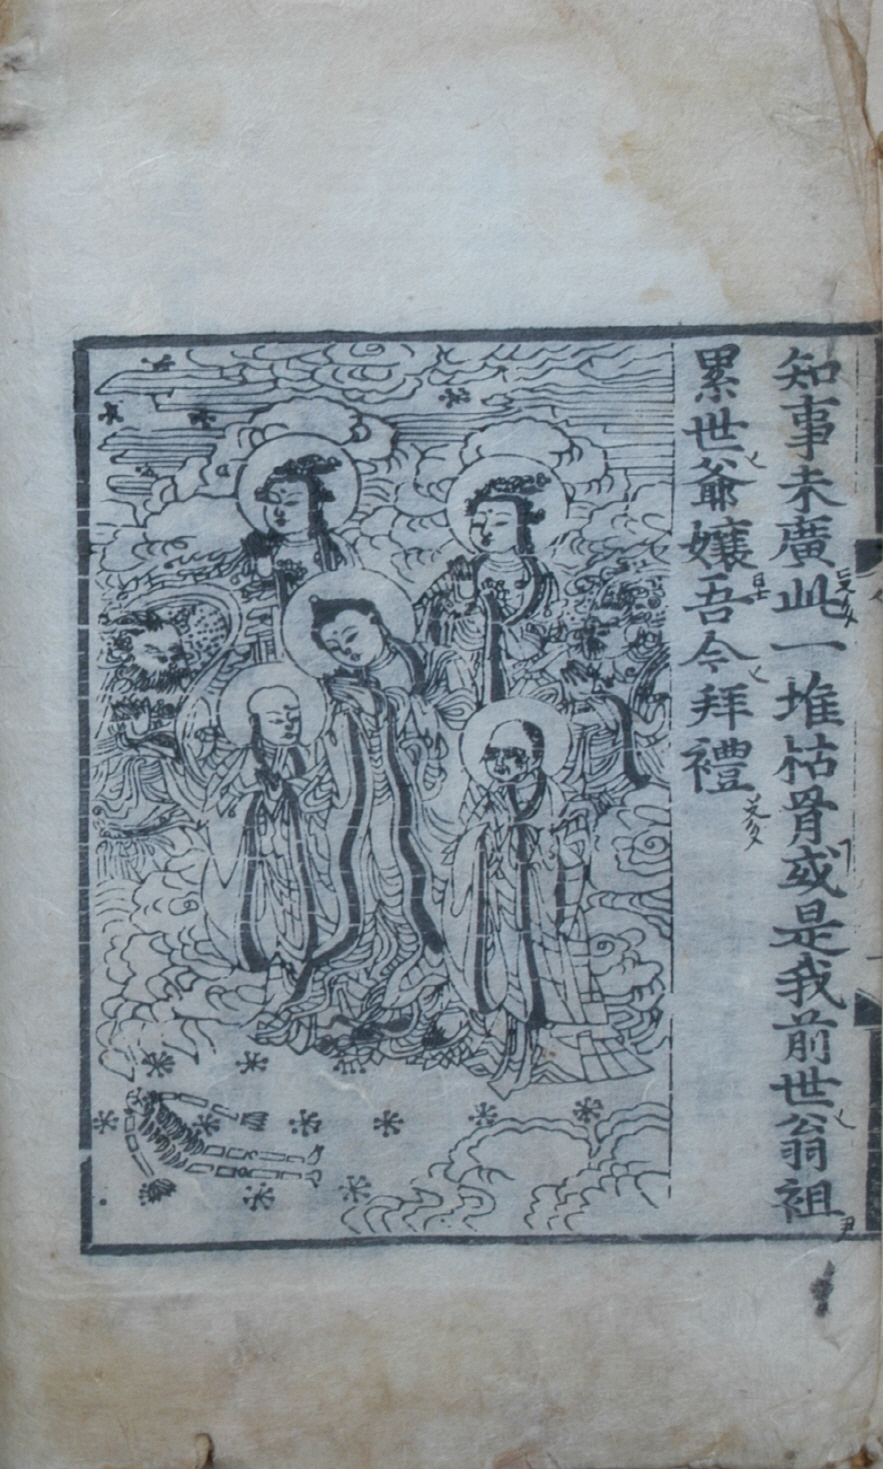 知事未廣此一堆枯骨或是我前世翁祖
累世爺孃吾今拜禮